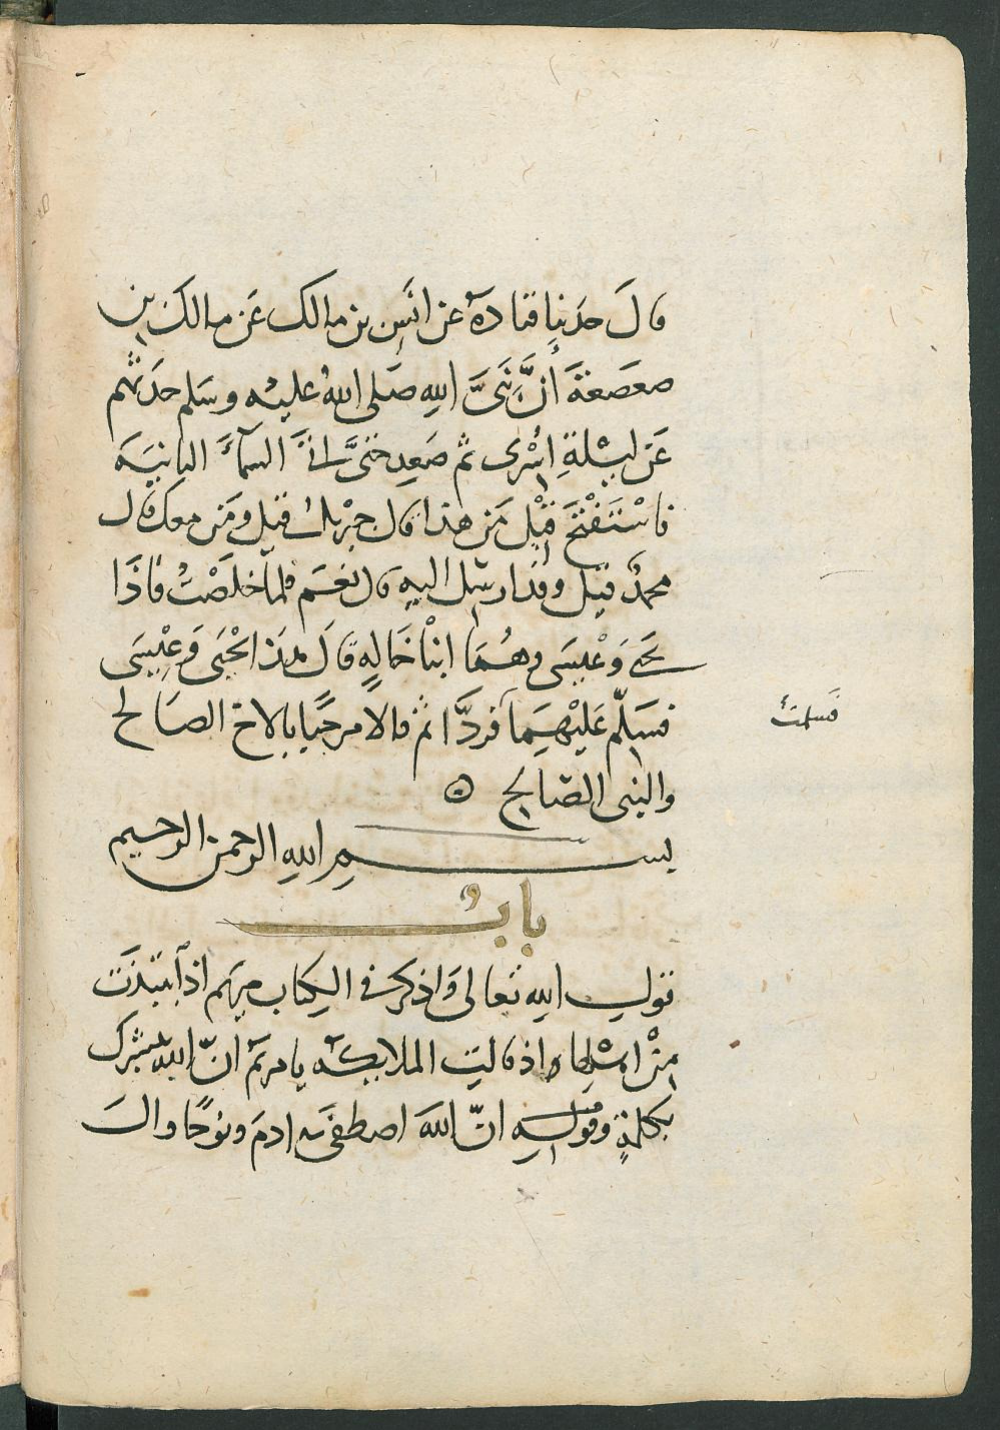 قال حدثنا قتادة عن انس بن مالك عن مالك بن
صعصعة أنّ نبىّ الله صلى الله عليه وسلم حدثهم
عن ليلة اسرى ثم صعد حتىّ اتى السمآء الثانية
فاستفتح قيل من هذا قال جبريل قيل ومن معك قال
محمد قيل وقد ارسل اليه قال نعم فلما خلصت فاذا
يحيى وعيسى وهما ابنا خالة قال هذا يحيى وعيسى
فسلّم عليهما فردّا ثم قالا مرحبا بالاخ الصالح
فسلمت
والنبى الصالح ه
بسم الله الرحمن الرحيم
باب
قول الله تعالى واذكر فى الكتاب مريم اذ انتبذت
من اهلها واذ قالت الملايكة يا مريم انّ الله يبشرك
بكلمة وقوله انّ الله اصطفى ادم ونوحا وال